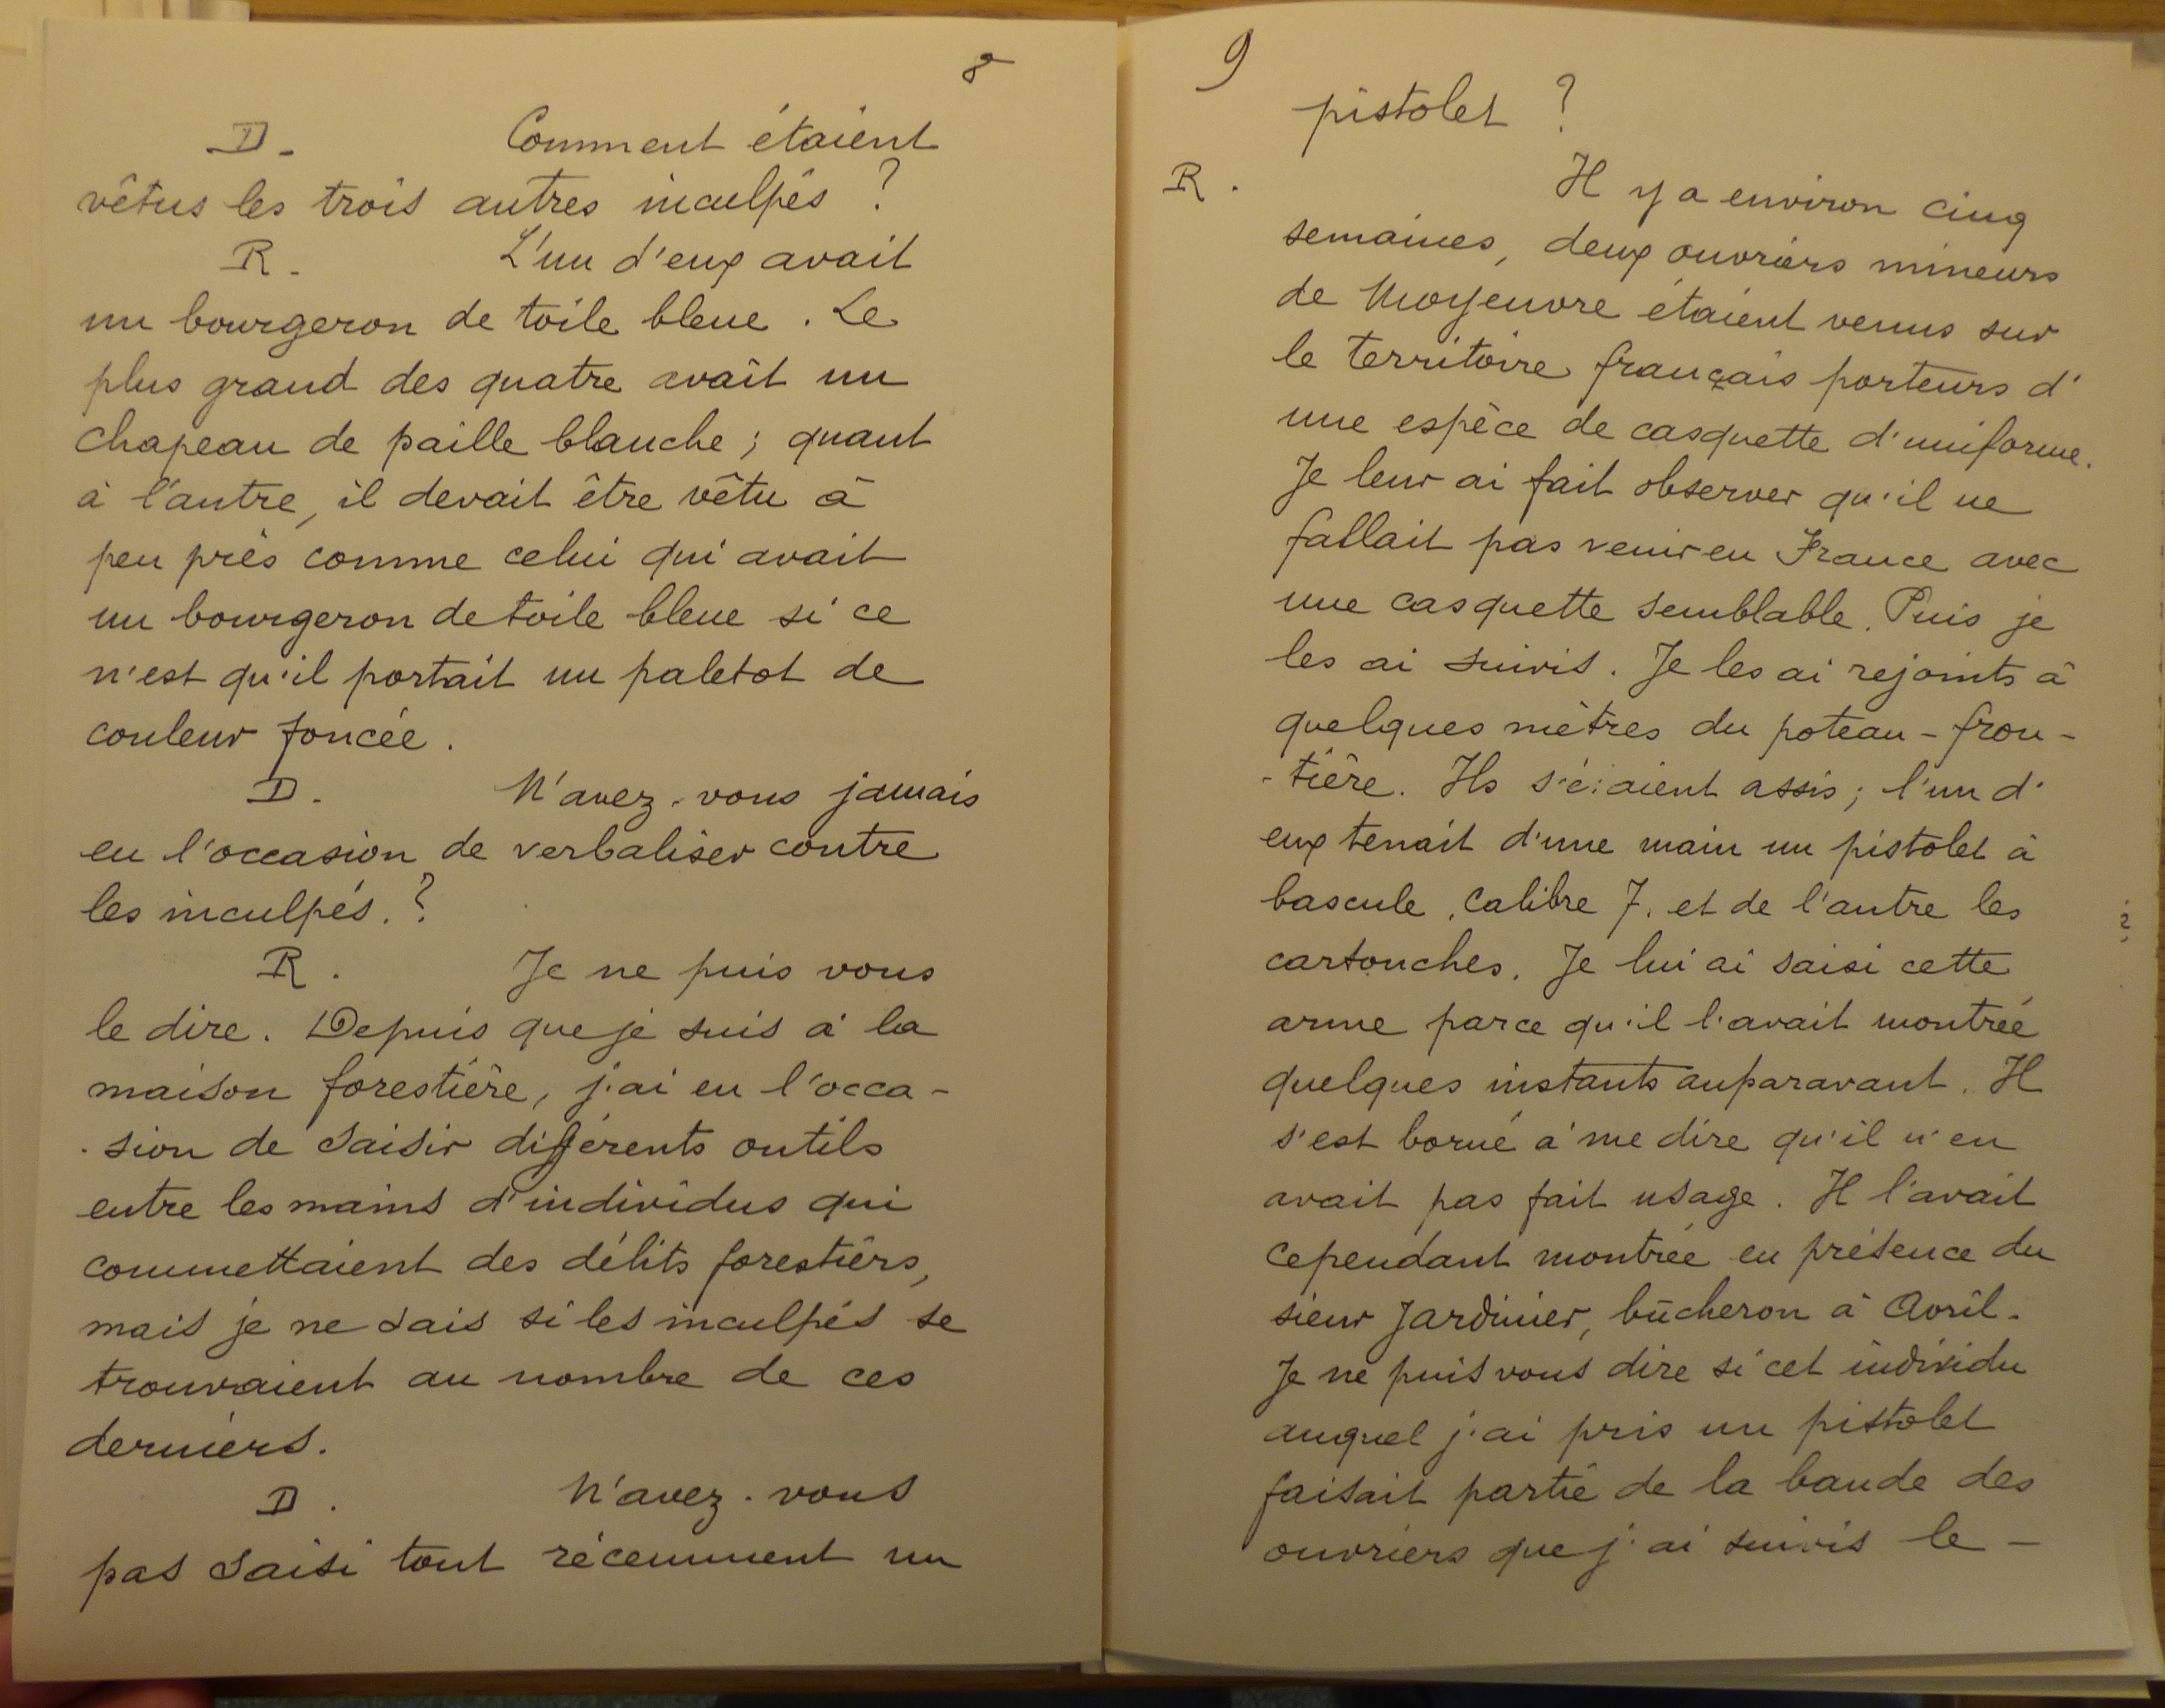 8
D. Comment étaient
vêtus les trois autres inculpés ?
R. L'un d'eux avait
un bourgeron de toile bleue. Le
plus grand des quatre avait un
chapeau de paille blanche ; quant
à l'autre, il devait être vêtu à
peu près comme celui qui avait
un bourgeron de toile bleue si ce
n'est qu'il portait un paletot de
couleur foncée.
D. N'avez-vous jamais
eu l'occasion de verbaliser contre
les inculpés. ?
R. Je ne puis vous
le dire. Depuis que je suis à la
maison forestière, j'ai eu l'occa-
-sion de saisir différents outils
entre les mains d'individus qui
commettaient des délits forestiers,
mais je ne sais si les inculpés se
trouvaient au nombre de ces
derniers.
D. N'avez-vous
pas saisi tout récemment un
9
pistolet ?
R. Il y a environ cinq
semaines, deux ouvriers mineurs
de Moyeuvre étaient venus sur
le territoire français porteurs d'
une espèce de casquette d'uniforme.
Je leur ai fait observer qu'il ne
fallait pas venir en France avec
une casquette semblable. Puis je
les ai suivis. Je les ai rejoints à
quelques mètres du poteau-fron-
-tière. Ils s'étaient assis ; l'un d'
eux tenait d'une main un pistolet à
bascule, calibre 7, et de l'autre les
cartouches. Je lui ai saisi cette
arme parce qu'il l'avait montrée
quelques instants auparavant. Il
s'est borné à me dire qu'il n'en
avait pas fait usage. Il l'avait
cependant montrée en présence du
sieur Jardinier, bûcheron à Avril.
Je ne puis vous dire si cet individu
auquel j'ai pris un pistolet
faisait partie de la bande des
ouvriers que j'ai suivis le -